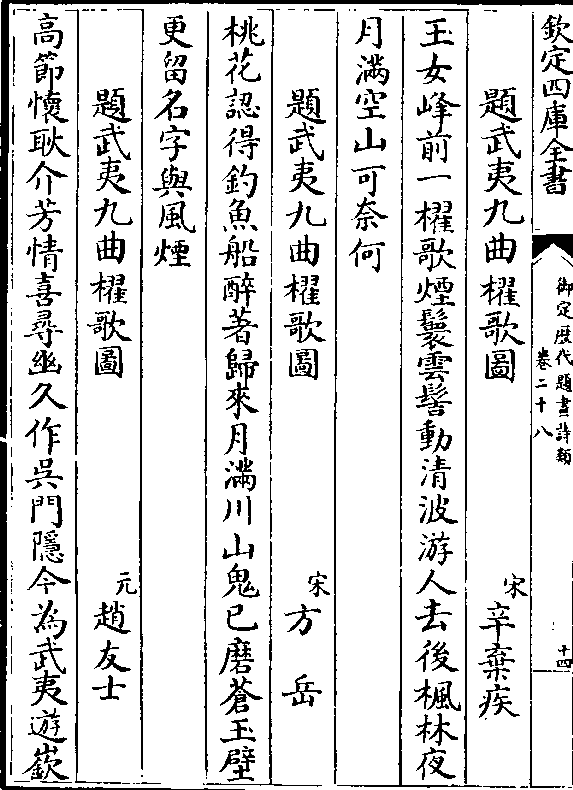 欽定四庫全書
御定歷代題畫詩類
卷二十八
十四
題武夷九曲櫂歌圖
宋
辛棄疾
玉女峰前一櫂歌煙鬟雲髻動清波游人去後楓林夜
月滿空山可奈何
題武夷九曲櫂歌圖
宋
方岳
桃花認得釣魚船醉著歸來月滿川山鬼已磨蒼玉壁
更留名字與風煙
題武夷九曲櫂歌圖
元
趙友士
高節懷耿介芳情喜尋幽久作吳門隱今為武夷遊嶔